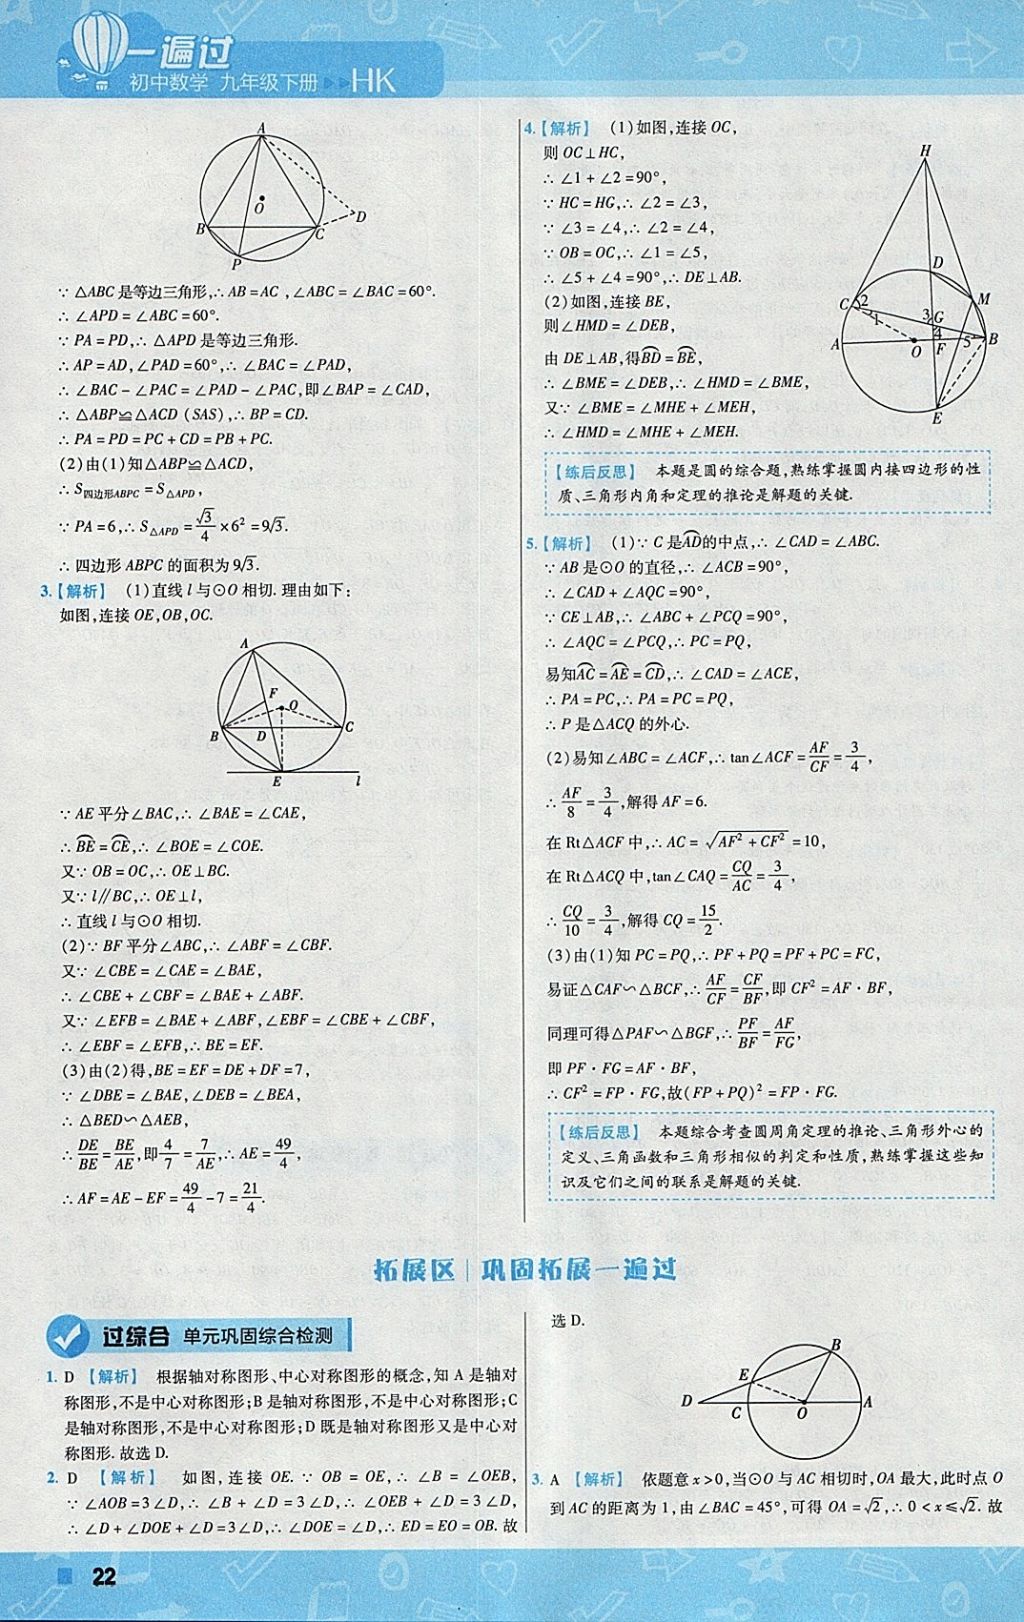 一遍过
初中数学 九年级下册 ▶▶HK
A
O
B
C
D
P
∵ △ABC 是等边三角形,∴ AB = AC ,∠ABC = ∠BAC = 60°.
∴ ∠APD = ∠ABC = 60°.
∵ PA = PD,∴ △APD 是等边三角形.
∴ AP = AD,∠PAD = 60°,∴ ∠BAC = ∠PAD,
∴ ∠BAC − ∠PAC = ∠PAD − ∠PAC,即∠BAP = ∠CAD,
∴ △ABP≌△ACD (SAS),∴ BP = CD.
∴ PA = PD = PC + CD = PB + PC.
(2)由(1)知△ABP≌△ACD,
∴ S四边形ABPC = S△APD,
∵ PA = 6,∴ S△APD = √3/4 × 6² = 9√3.
∴ 四边形 ABPC 的面积为 9√3.
3.【解析】 (1)直线 l 与⊙O 相切. 理由如下:
如图,连接 OE,OB,OC.
A
F
O
B
D
C
E
l
∵ AE 平分∠BAC,∴ ∠BAE = ∠CAE,
∴ B͡E = C͡E,∴ ∠BOE = ∠COE.
又∵ OB = OC,∴ OE⊥BC.
又∵ l∥BC,∴ OE⊥l,
∴ 直线 l 与⊙O 相切.
(2)∵ BF 平分∠ABC,∴ ∠ABF = ∠CBF.
又∵ ∠CBE = ∠CAE = ∠BAE,
∴ ∠CBE + ∠CBF = ∠BAE + ∠ABF.
又∵ ∠EFB = ∠BAE + ∠ABF,∠EBF = ∠CBE + ∠CBF,
∴ ∠EBF = ∠EFB,∴ BE = EF.
(3)由(2)得,BE = EF = DE + DF = 7,
∵ ∠DBE = ∠BAE,∠DEB = ∠BEA,
∴ △BED∽△AEB,
∴ DE/BE = BE/AE,即 4/7 = 7/AE,∴ AE = 49/4,
∴ AF = AE − EF = 49/4 − 7 = 21/4.
4.【解析】 (1)如图,连接 OC,
则 OC⊥HC,
∴ ∠1 + ∠2 = 90°,
∵ HC = HG,∴ ∠2 = ∠3,
∵ ∠3 = ∠4,∴ ∠2 = ∠4,
∵ OB = OC,∴ ∠1 = ∠5,
∴ ∠5 + ∠4 = 90°,∴ DE⊥AB.
(2)如图,连接 BE,
则∠HMD = ∠DEB,
由 DE⊥AB,得B͡D = B͡E,
∴ ∠BME = ∠DEB,∴ ∠HMD = ∠BME,
又∵ ∠BME = ∠MHE + ∠MEH,
∴ ∠HMD = ∠MHE + ∠MEH.
H
D
C
2
M
1
3
G
4
A
O
F
5
B
E
【练后反思】 本题是圆的综合题,熟练掌握圆内接四边形的性
质、三角形内角和定理的推论是解题的关键.
5.【解析】 (1)∵ C 是A͡D的中点,∴ ∠CAD = ∠ABC.
∵ AB 是⊙O 的直径,∴ ∠ACB = 90°,
∴ ∠CAD + ∠AQC = 90°,
∵ CE⊥AB,∴ ∠ABC + ∠PCQ = 90°,
∴ ∠AQC = ∠PCQ,∴ PC = PQ,
易知A͡C = A͡E = C͡D,∴ ∠CAD = ∠ACE,
∴ PA = PC,∴ PA = PC = PQ,
∴ P 是△ACQ 的外心.
(2)易知∠ABC = ∠ACF,∴ tan∠ACF = AF/CF = 3/4,
∴ AF/8 = 3/4,解得 AF = 6.
在 Rt△ACF 中,∴ AC = √(AF² + CF²) = 10,
在 Rt△ACQ 中,tan∠CAQ = CQ/AC = 3/4,
∴ CQ/10 = 3/4,解得 CQ = 15/2.
(3)由(1)知 PC = PQ,∴ PF + PQ = PF + PC = FC,
易证△CAF∽△BCF,∴ AF/CF = CF/BF,即 CF² = AF · BF,
同理可得△PAF∽△BGF,∴ PF/BF = AF/FG,
即 PF · FG = AF · BF,
∴ CF² = FP · FG,故(FP + PQ)² = FP · FG.
【练后反思】 本题综合考查圆周角定理的推论、三角形外心的
定义、三角函数和三角形相似的判定和性质,熟练掌握这些知
识及它们之间的联系是解题的关键.
拓展区 | 巩固拓展一遍过
过综合 单元巩固综合检测
1. D 【解析】 根据轴对称图形、中心对称图形的概念,知 A 是轴对
称图形,不是中心对称图形;B 是轴对称图形,不是中心对称图形;C
是轴对称图形,不是中心对称图形;D 既是轴对称图形又是中心对
称图形. 故选 D.
2. D 【解析】 如图,连接 OE. ∵ OB = OE,∴ ∠B = ∠OEB,
∵ ∠AOB = 3∠D,∴ ∠B + ∠D = 3∠D,∴ ∠OEB + ∠D = 3∠D,
∴ ∠D + ∠DOE + ∠D = 3∠D,∴ ∠DOE = ∠D,∴ ED = EO = OB. 故
选 D.
B
E
D
C
O
A
3. A 【解析】 依题意 x > 0,当⊙O 与 AC 相切时,OA 最大,此时点 O
到 AC 的距离为 1,由∠BAC = 45°,可得 OA = √2,∴ 0 < x ≤ √2. 故
22